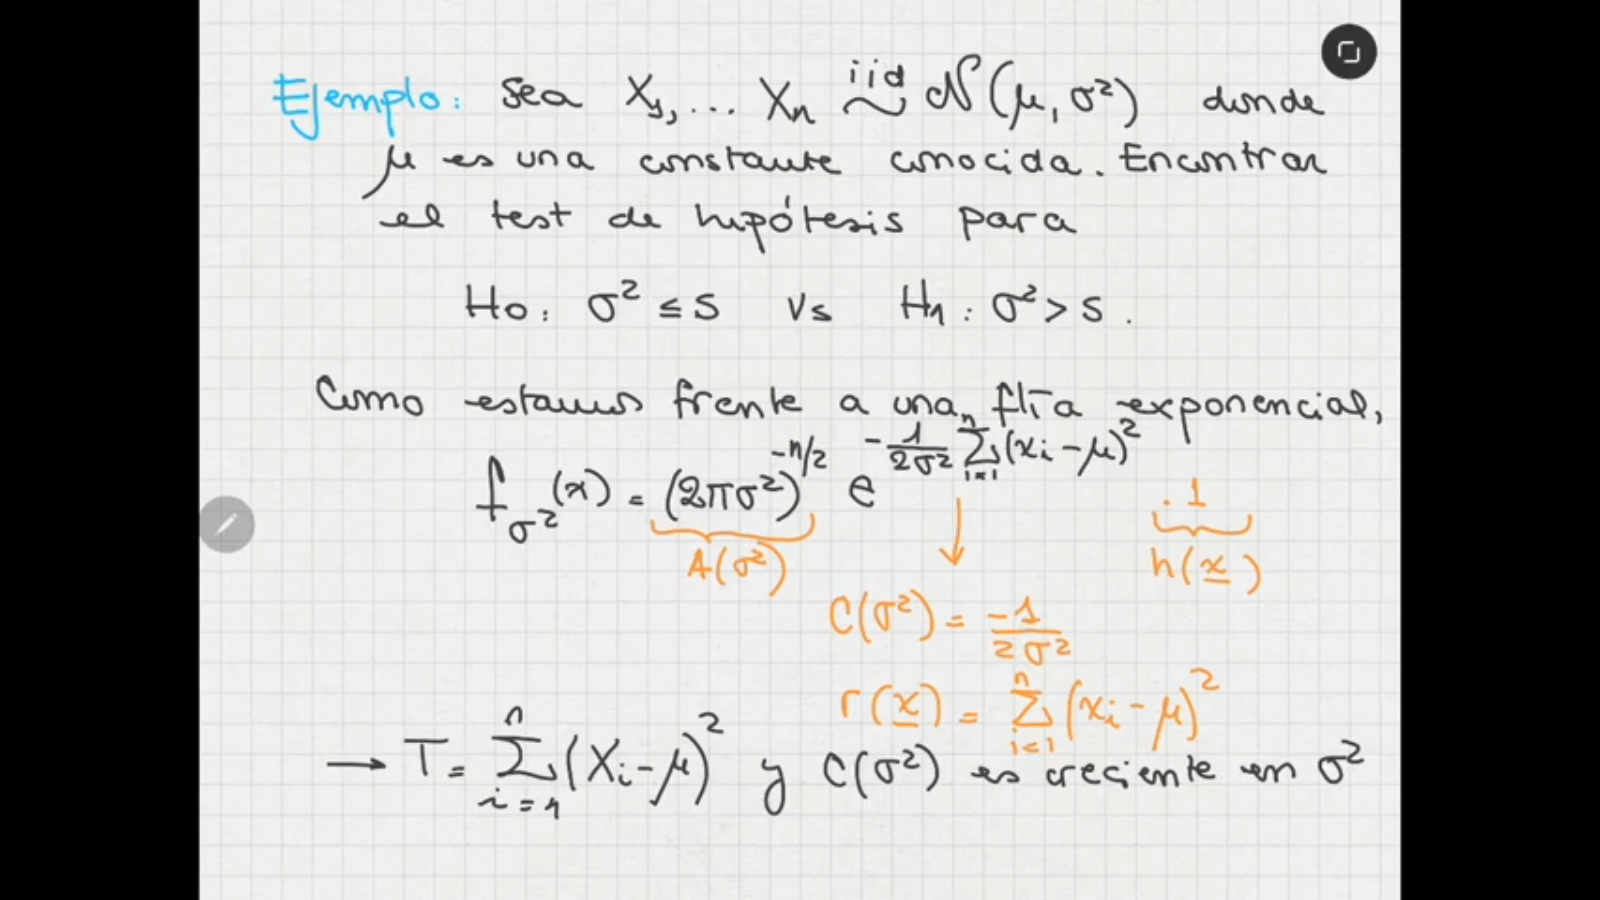 Ejemplo: sea X₁, ... Xₙ iid ~ N(μ, σ²) donde
μ es una constante conocida. Encontrar
el test de hipótesis para
H₀: σ² ≤ 5 vs H₁: σ² > 5.
Como estamos frente a una flia exponencial,
f_σ²(x) = (2πσ²)^(-n/2) e^(-1/(2σ²) Σ_{i=1}^n (xi-μ)²) . 1
A(σ²) h(x)
C(σ²) = -1/(2σ²)
r(x) = Σ_{i=1}^n (xi-μ)²
→ T = Σ_{i=1}^n (Xi-μ)² y C(σ²) es creciente en σ²